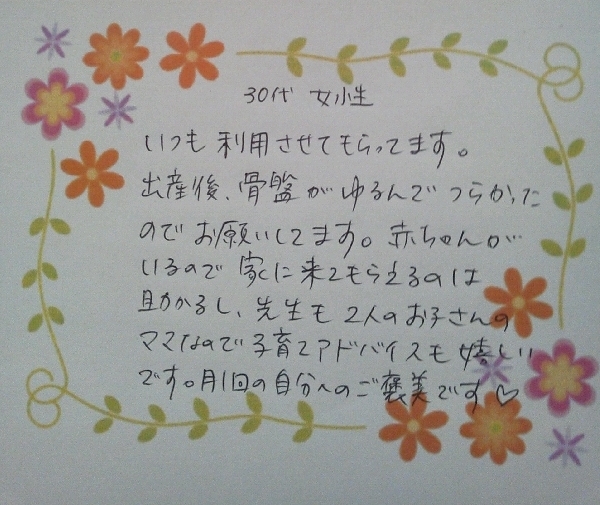 30代 女性
いつも 利用させてもらってます。
出産後、骨盤がゆるんでつらかった
のでお願いしてます。赤ちゃんが
いるので 家に来てもらえるのは
助かるし、先生も 2人のお子さんの
ママなので子育てアドバイスも嬉しい
です。月1回の自分へのご褒美です♡